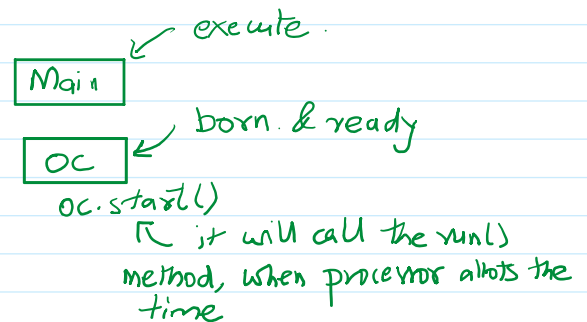 execute.
Main
born. & ready
OC
OC.start()
it will call the run()
method, when processor allots the
time